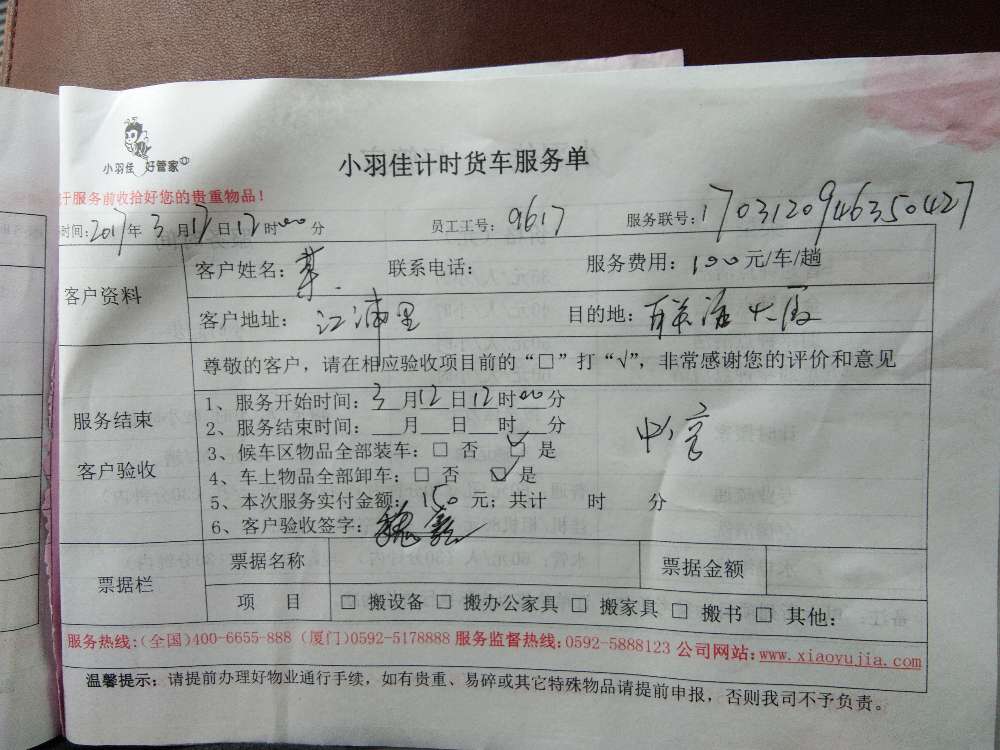 小羽佳 好管家
小羽佳计时货车服务单
服务前收拾好您的贵重物品！
时间：2017年3月12日12时00分 员工工号：9617 服务联号：1703120946350427
客户资料 客户姓名： 联系电话： 服务费用：100元/车/趟
客户地址：江浦里 目的地：联活大厦
尊敬的客户，请在相应验收项目前的“□”打“√”，非常感谢您的评价和意见
服务结束
客户验收
1、服务开始时间：3月12日12时00分
2、服务结束时间：___月___日___时___分
3、候车区物品全部装车：□ 否 ☑ 是
4、车上物品全部卸车：□ 否 ☑ 是
5、本次服务实付金额：150元；共计 时 分
6、客户验收签字：
票据栏 票据名称 票据金额
项 目 □ 搬设备 □ 搬办公家具 □ 搬家具 □ 搬书 □ 其他：
服务热线：(全国)400-6655-888 (厦门)0592-5178888 服务监督热线：0592-5888123 公司网站：www.xiaoyujia.com
温馨提示：请提前办理好物业通行手续，如有贵重、易碎或其它特殊物品请提前申报，否则我司不予负责。